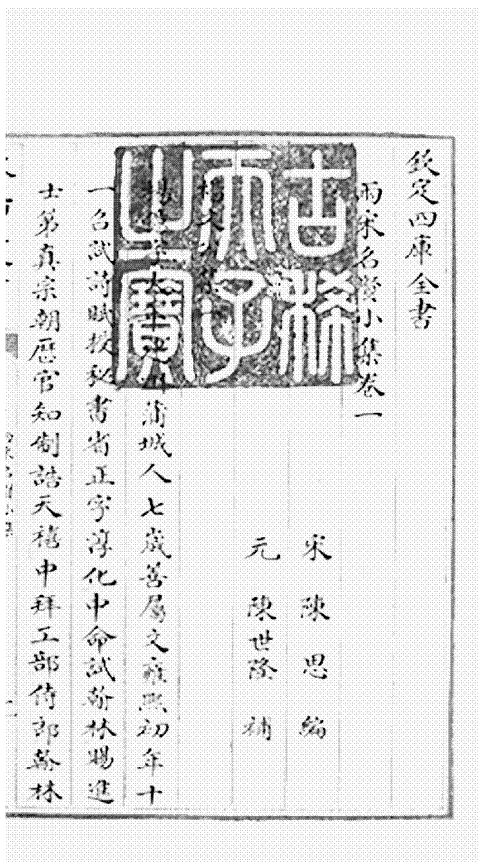 欽定四庫全書
兩宋名賢小集卷一
宋 陳思 編
元 陳世隆 補
古稀
天子
之寶
蒲城人七歲善屬文雍熙初年十
一召試詩賦授秘書省正字淳化中命試翰林賜進
士第真宗朝厯官知制誥天禧中拜工部侍郎翰林